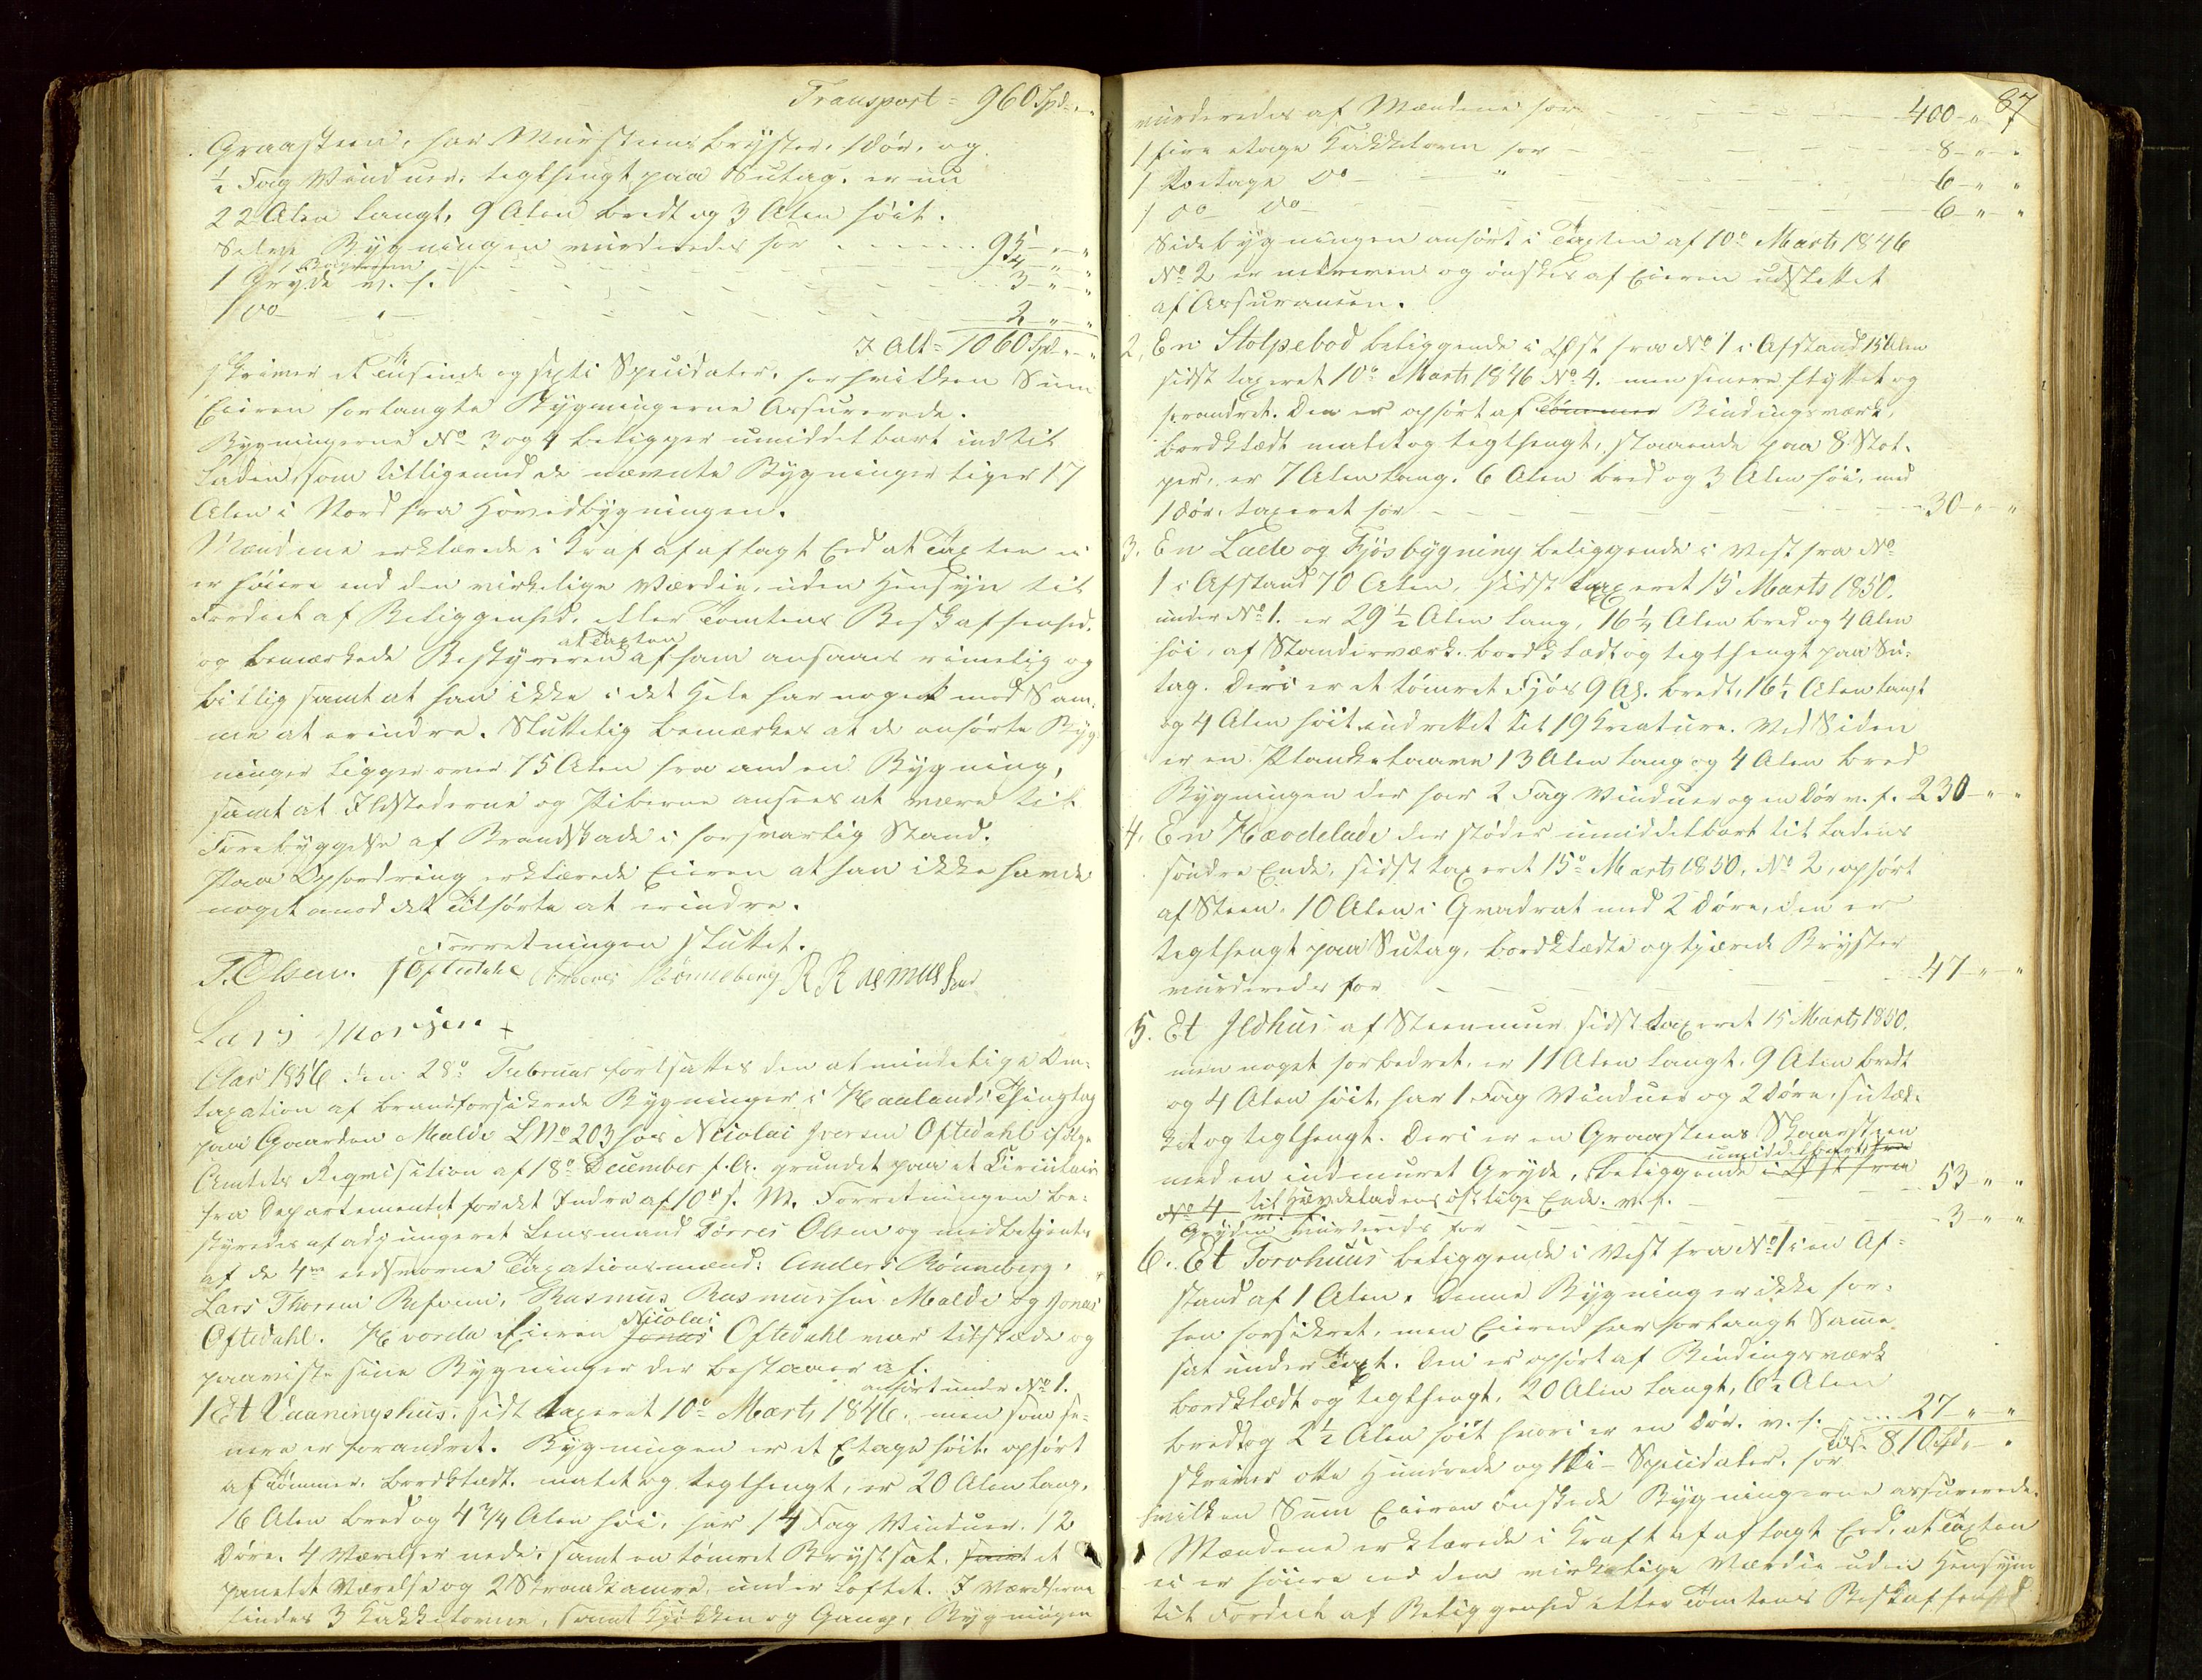 Transport = 960 Spd. " "
Graasteen, har Muursteens Bryster, 1 Dør, og
½ Fag Vinduer, teglhængt paa Sutag. er nu
22 Alen langt, 9 Alen bredt og 3 Alen høit.
Selve Bygningen vurderedes for 95 - " - "
4 - " - "
1 Gryde v. f. 3 - " - "
1 do 2 - " - "
I Alt = 1060 Spd. " "
skriver et Tusinde og sexti Speciedaler, for hvilken Sum
Eieren forlangte Bygningerne Assurerede.
Bygningerne No 3 og 4 beligger umiddelbart ind til
Laden, som tilligemed de nævnte Bygninger liger 17
Alen i Nord fra Hovedbygningen.
Mændene erklærede i Kraf af aflagt Eed at Taxten ei
er høiere end den virkelige Værdie, uden Hensyn til
Fordeel af Beliggenhed, eller Tomtens Beskaffenhed,
at Taxten
og bemærkede Bestyreren af ham ansaaes rimelig og
billig samt at han ikke i det Hele har noget mod Sam-
me at erindre. Sluttelig bemærkes at de anførte Byg-
ninger ligger over 75 Alen fra anden Bygning,
samt at Ildstederne og Piberne ansees at være til
Forebyggelse af Brandskade i forsvarlig Stand.
Paa Opfordring erklærede Eieren at han ikke havde
noget mod det Tilførte at erindre.
Forretningen sluttet.
T. Olsen. J Oftedahl Anders Rønneberg R Rasmussen
Lars Thorsen +
Aar 1856 den 28de Februar fortsattes den almindelige Om-
taxation af brandforsikrede Bygninger i Haalands Thinglag
paa Gaarden Malde L No 203 hos Nicolai Iversen Oftedahl ifølge
Amtets Reqvisition af 18de December f. A. grundet paa et Circulair
fra Departementet for det Indre af 10de s. M. Forretningen be-
styredes af adjungeret Lensmand Tørres Olsen og medbetjentes
af de 4re eedsvorne Taxationsmænd: Anders Rønneberg,
Lars Thorsen Revem, Rasmus Rasmussen Malde og Jonas
Nicolai
Oftedahl. Hvorda Eieren Jonas Oftedahl var tilstæde og
paaviste sine Bygninger der bestaaer af.
anført under No 1.
1 Et Vaaningshus. sidst taxeret 10de Marts 1846. men som se-
nere er forandret. Bygningen er et Etage høit, opført
af Tømmer, bordklædt, malet og teglhængt, er 20 Alen lang,
16 Alen bred og 4 3/4 Alen høi, har 14 Fag Vinduer, 12
Døre, 4 Værelser nede, samt en tømret Brystsal, samt et
panelet Værelse og 2 Skraakamre under Loftet. I Værelserne
findes 3 Kakkelovne, samt Kjøkken og Gang, Bygningen
87
vurderedes af Mændene for 400 - "
1 fire etage Kakkelovn for 8 - " - "
1 Toetage do " 6 - " "
1 do do 6 - " - "
Sidebygningen anført i Taxten af 10de Marts 1846
No 2 er nedreven og ønskes af Eieren udslettet
af Assurancen.
2, En Stolpebod beliggende i Øst fra No 1 i Afstand 15 Alen
sidst taxeret 10de Marts 1846 No 4. men senere flyttet og
forandret. Den er opført af Tømmer Bindingsværk,
bordklædt malet og teglhængt, staaende paa 8 Stol-
per, er 7 Alen lang, 6 Alen bred og 3 Alen høi, med
1 Dør, taxeret for 30 - " - "
3. En Lade og Fjøsbygning beliggende i Vest fra No
1 i Afstand 70 Alen, sidst taxeret 15 Marts 1850.
under No 1. er 29 ½ Alen lang, 16 ¼ Alen bred og 4 Alen
høi, af Standerværk, bordklædt og teglhængt paa Su-
tag. Deri er et tømret Fjøs 9 Al. bredt, 16 ½ Alen langt
og 4 Alen høit indrettet til 19 Kreature. Ved Siden
er en Plankelaave 13 Alen lang og 4 Alen bred
Bygningen der har 2 Fag Vinduer og en Dør v. f. 230 - " - "
4, En Høvdelade der støder umiddelbart til Ladens
søndre Ende, sidst taxeret 15de Marts 1850, No 2, opført
af Steen, 10 Alen i Qvadrat med 2 Døre, den er
teglhængt paa Sutag, bordklædte og tjærede Bryster
vurderedes for 47 - " - "
5. Et Ildhus af Steenmuur sidst taxeret 15 Marts 1850.
men noget forbedret, er 11 Alen langt, 9 Alen bredt
og 4 Alen høit, har 1 Fag Vinduer og 2 Døre, sutæk-
ket og teglhængt. Deri er en Graasteens Skaarsteen
umiddelbart fra
med en indmuret Gryde, beliggende i Øst fra 53 - " "
No 4 til Høvdeladens østlige Ende. v. f.
Gryden vurdereds for 3 - " "
6. Et Torvhuus beliggende i Vest fra No 1 i en Af-
stand af 1 Alen. Denne Bygning er ikke før-
hen forsikret, men Eieren har forlangt Samme
sat under Taxt. Den er opført af Bindingsværk
bordklædt og teglhængt, 20 Alen langt, 6 ½ Alen
bredt og 2 ½ Alen høit hvori er en Dør. v. f. 27 " "
skriver otte Hundrede og Ti - Speciedaler, for Tils. 810 Spd. - "
hvilken Sum Eieren ønskede Bygningerne assurerede.
Mændene erklærede i Kraft af aflagt Eed, at Taxten
ei er høiere end den virkelige Værdie uden Hensyn
til Fordeel af Beliggenhed eller Tomtens Beskaffenhed